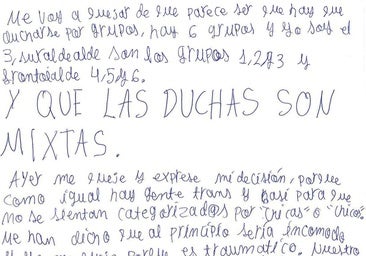 Me voy a quejar de que parece ser que hay que
ducharse por grupos, hay 6 grupos y yo soy el
3, sutaldealde son los grupos 1,2y3 y
frontoialde 4,5y6.
Y QUE LAS DUCHAS SON
MIXTAS.
Ayer me queje y exprese mi decisión, porque
como igual hay gente trans y basi para que
no se sientan categorizad@s por "chicas" o "chicos".
Me han dicho que al principio sería incomodo
porque es traumatico. Nuestro